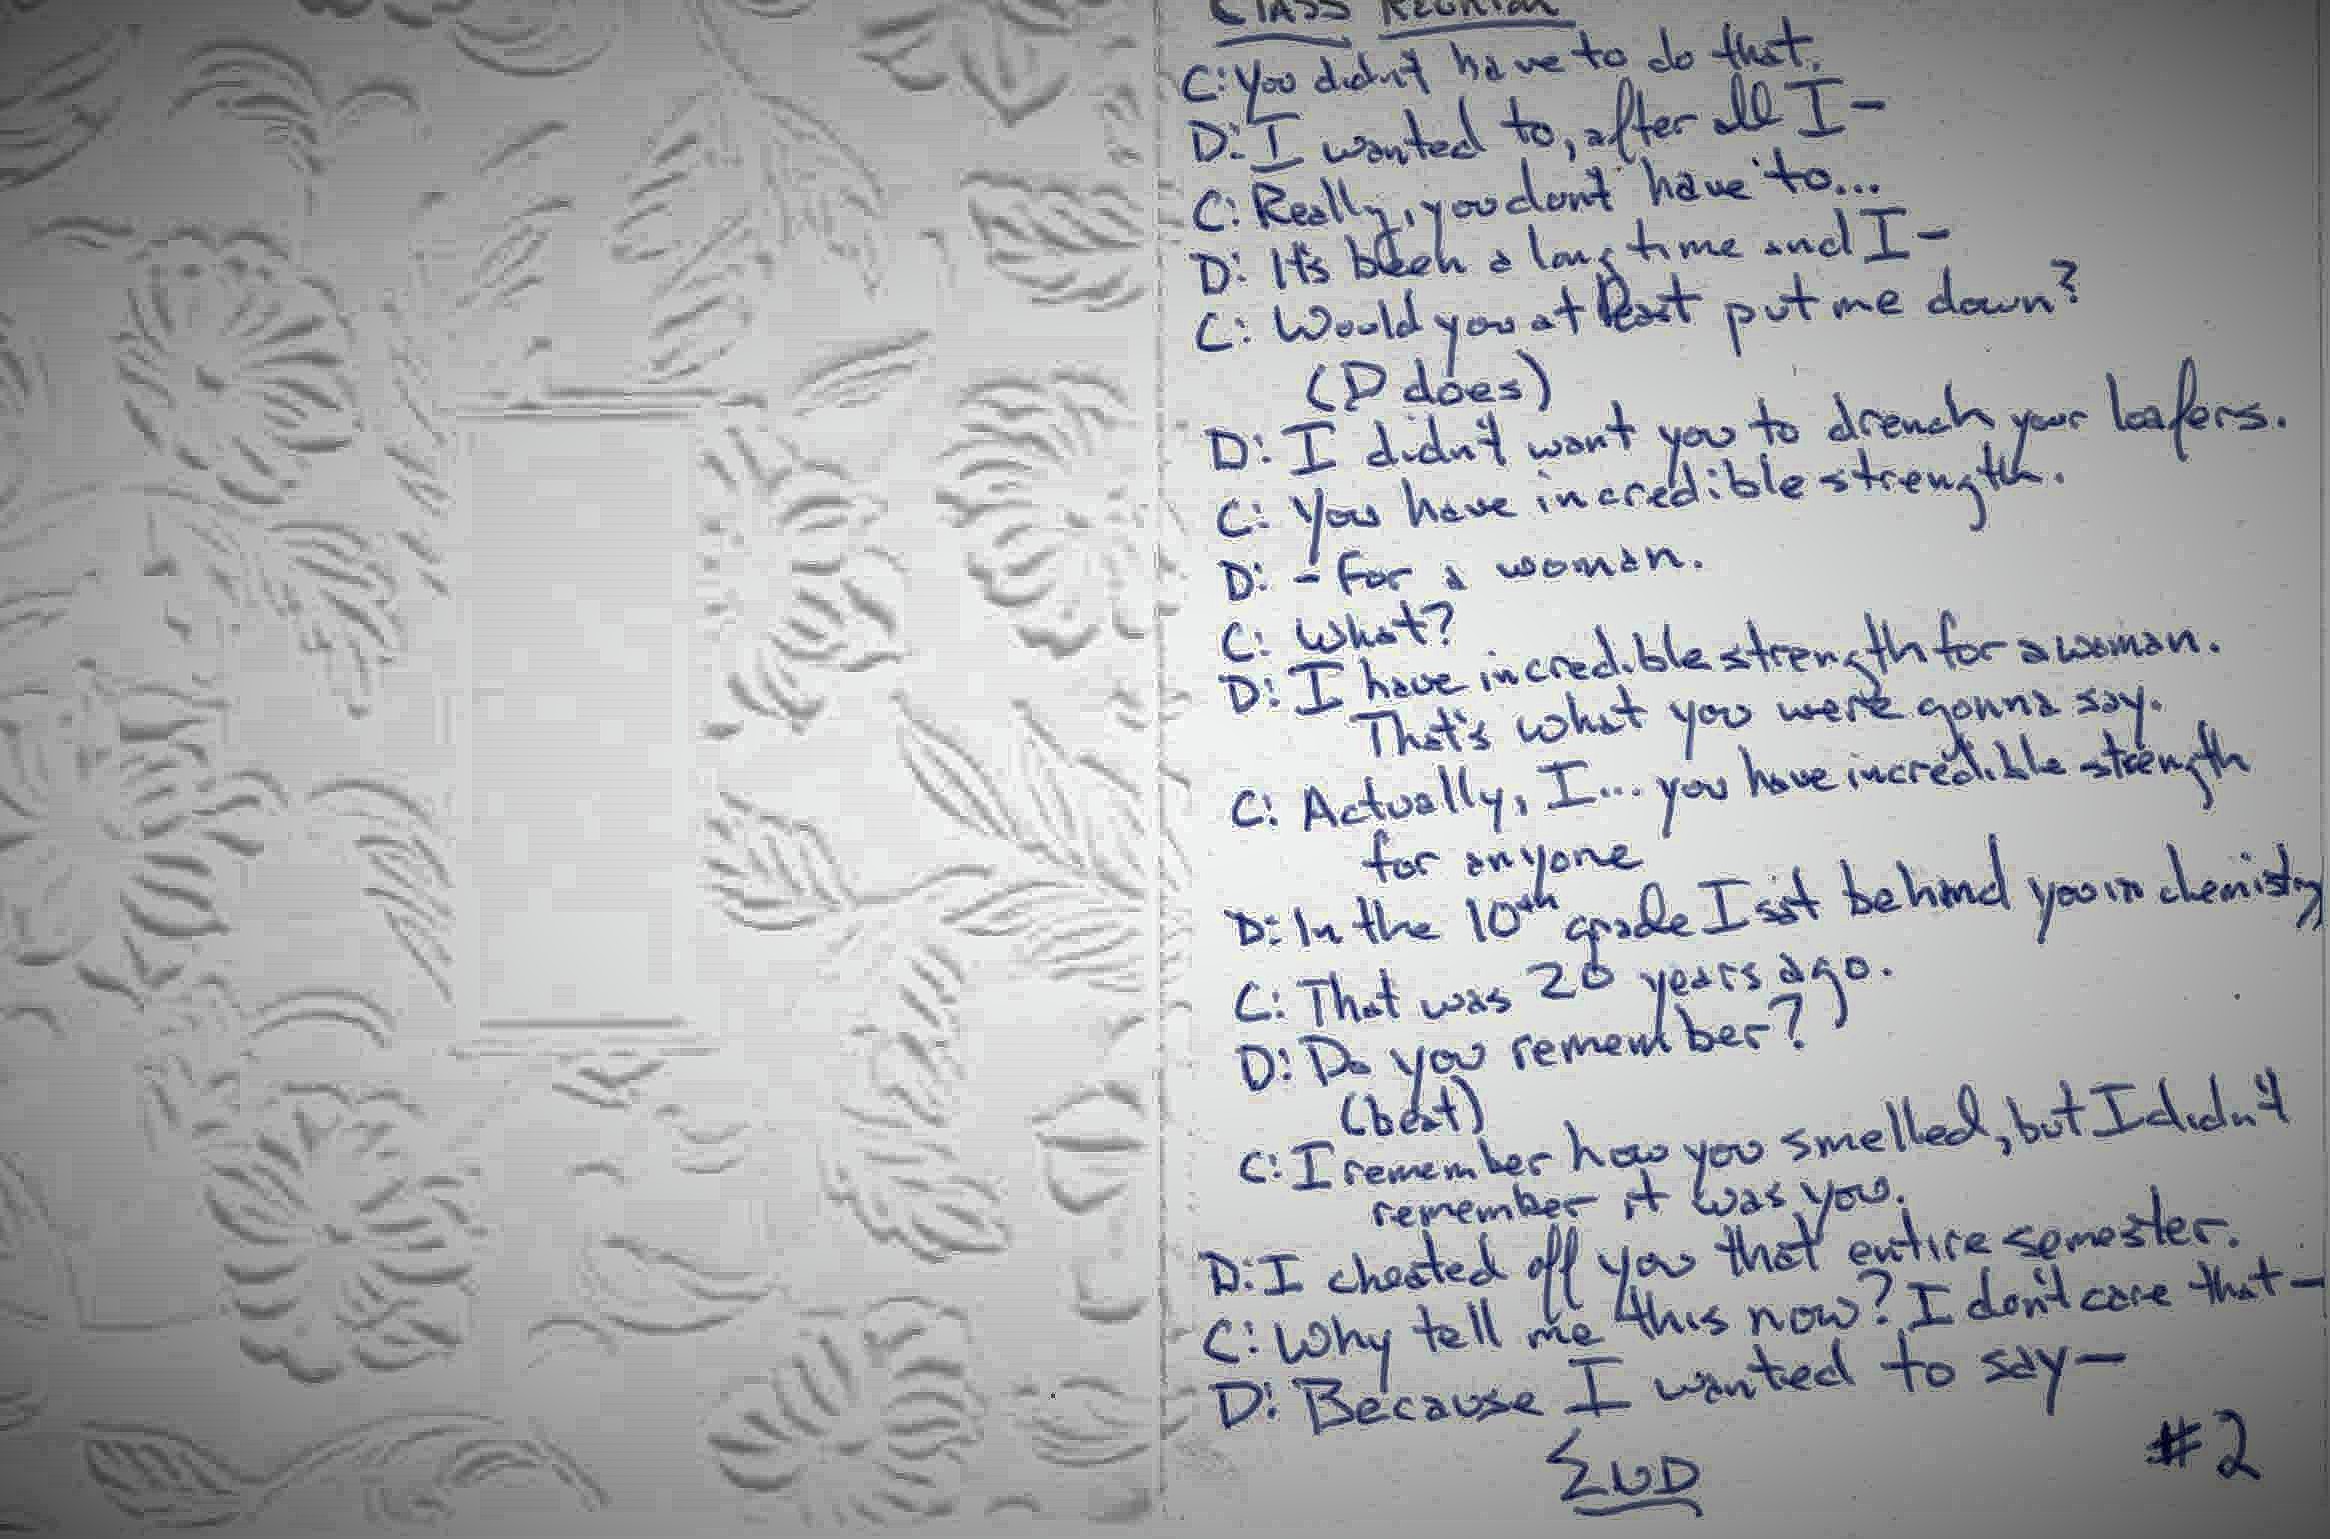 Class Reunion
C: You didn't have to do that.
D: I wanted to, after all I-
C: Really, you don't have to...
D: It's been a long time and I-
C: Would you at least put me down?
(D does)
D: I didn't want you to drench your loafers.
C: You have incredible strength.
D: - for a woman.
C: What?
D: I have incredible strength for a woman.
That's what you were gonna say.
C: Actually, I... you have incredible strength
for anyone
D: In the 10th grade I sat behind you in chemistry
C: That was 20 years ago.
D: Do you remember?
(beat)
C: I remember how you smelled, but I didn't
remember it was you.
D: I cheated off you that entire semester.
C: Why tell me this now? I don't care that-
D: Because I wanted to say-
END
#2